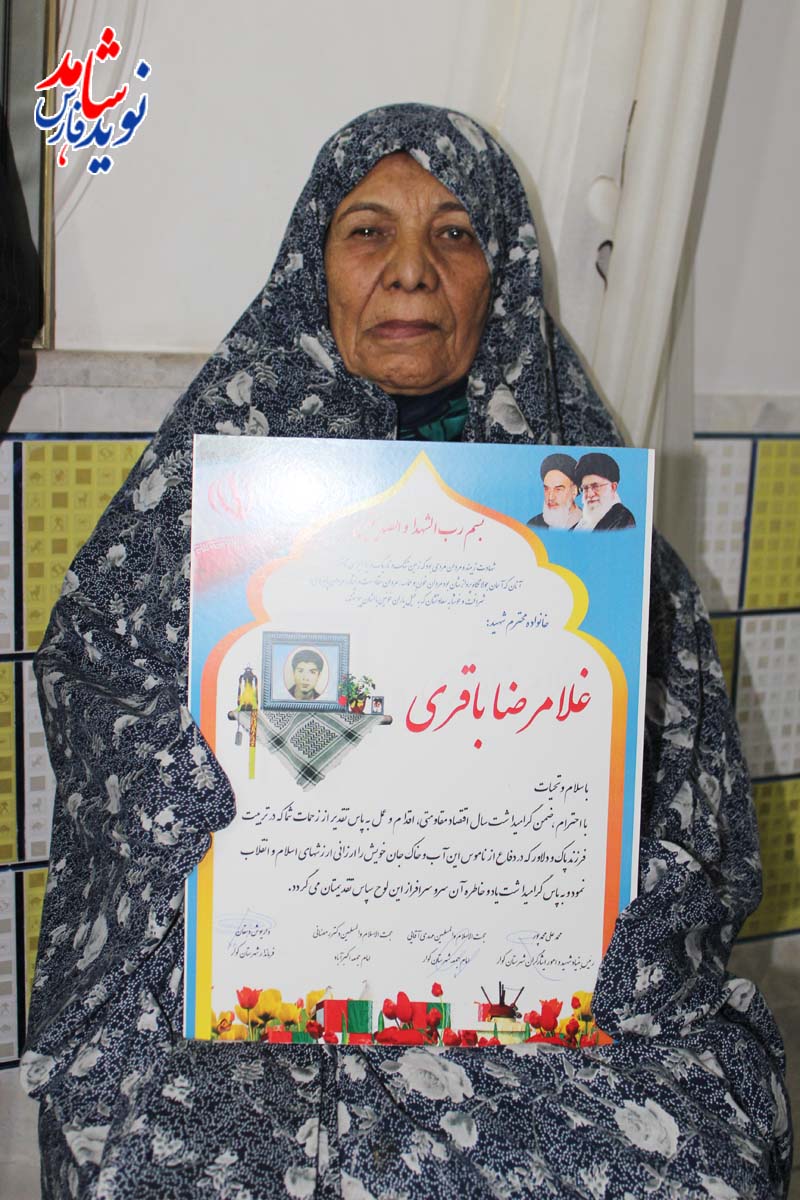 نوید شاهد
فارس
بسم رب الشهدا و الصدیقین
خانواده محترم شهید:
غلامرضا باقری
با سلام و تحیات
با احترام، ضمن گرامیداشت سال اقتصاد مقاومتی، اقدام و عمل به پاس تقدیر از زحمات شما که در تربیت
فرزند پاک و دلاور که در دفاع از ناموس این آب و خاک جان خویش را ارزانی ارزشهای اسلام و انقلاب
نمود و به پاس گرامیداشت یاد و خاطره آن سرو سرافراز این لوح سپاس تقدیمتان می گردد.
محمد علی محمدپور
رئیس بنیاد شهید و امور ایثارگران شهرستان کوار
حجت الاسلام والمسلمین مهدی آقایی
امام جمعه شهرستان کوار
حجت الاسلام والمسلمین دکتر رمضانی
امام جمعه اکبرآباد
داریوش دهقان
فرماندار شهرستان کوار